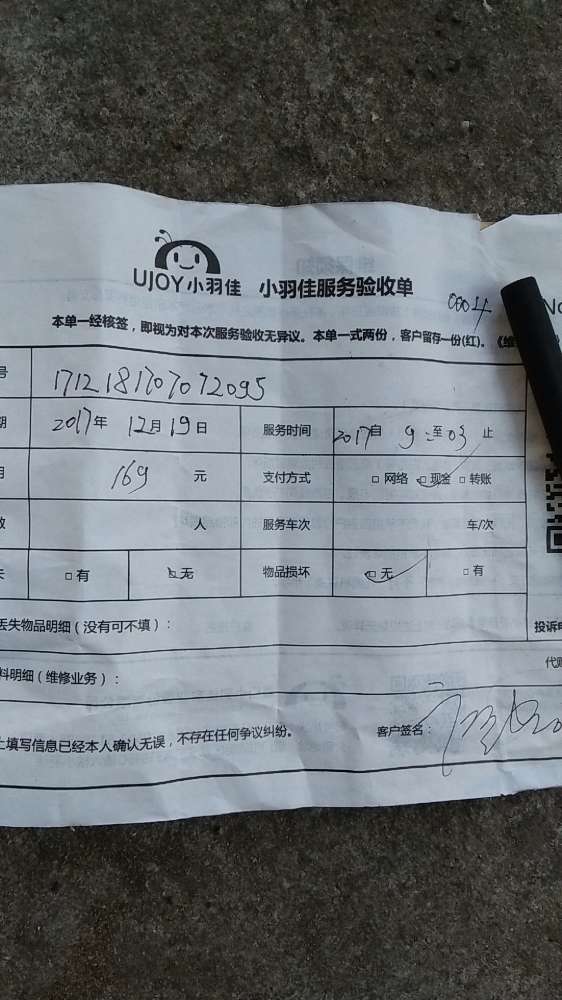 UJOY小羽佳 小羽佳服务验收单 0004 No
本单一经核签，即视为对本次服务验收无异议。本单一式两份，客户留存一份(红)。(维
号 1712181707072095
期 2017年 12月 19日 服务时间 2017自 9 至 03 止
用 169 元 支付方式 □网络 □现金 □转账
数 人 服务车次 车/次
失 □有 □无 物品损坏 □无 □有
丢失物品明细（没有可不填）： 投诉电
料明细（维修业务）： 代
上填写信息已经本人确认无误，不存在任何争议纠纷。 客户签名：